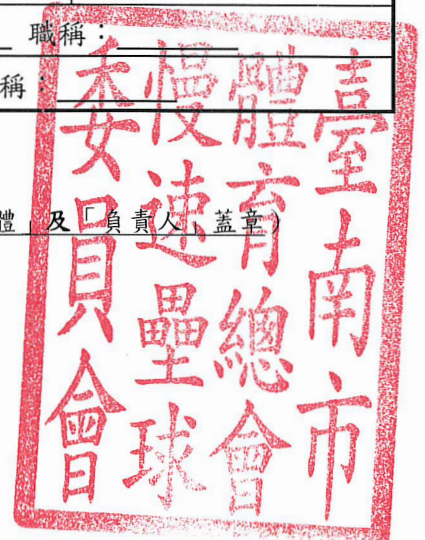 職稱：
稱：
體」及「負責人」蓋章）
臺南市
體育總會
慢速壘球
委員會